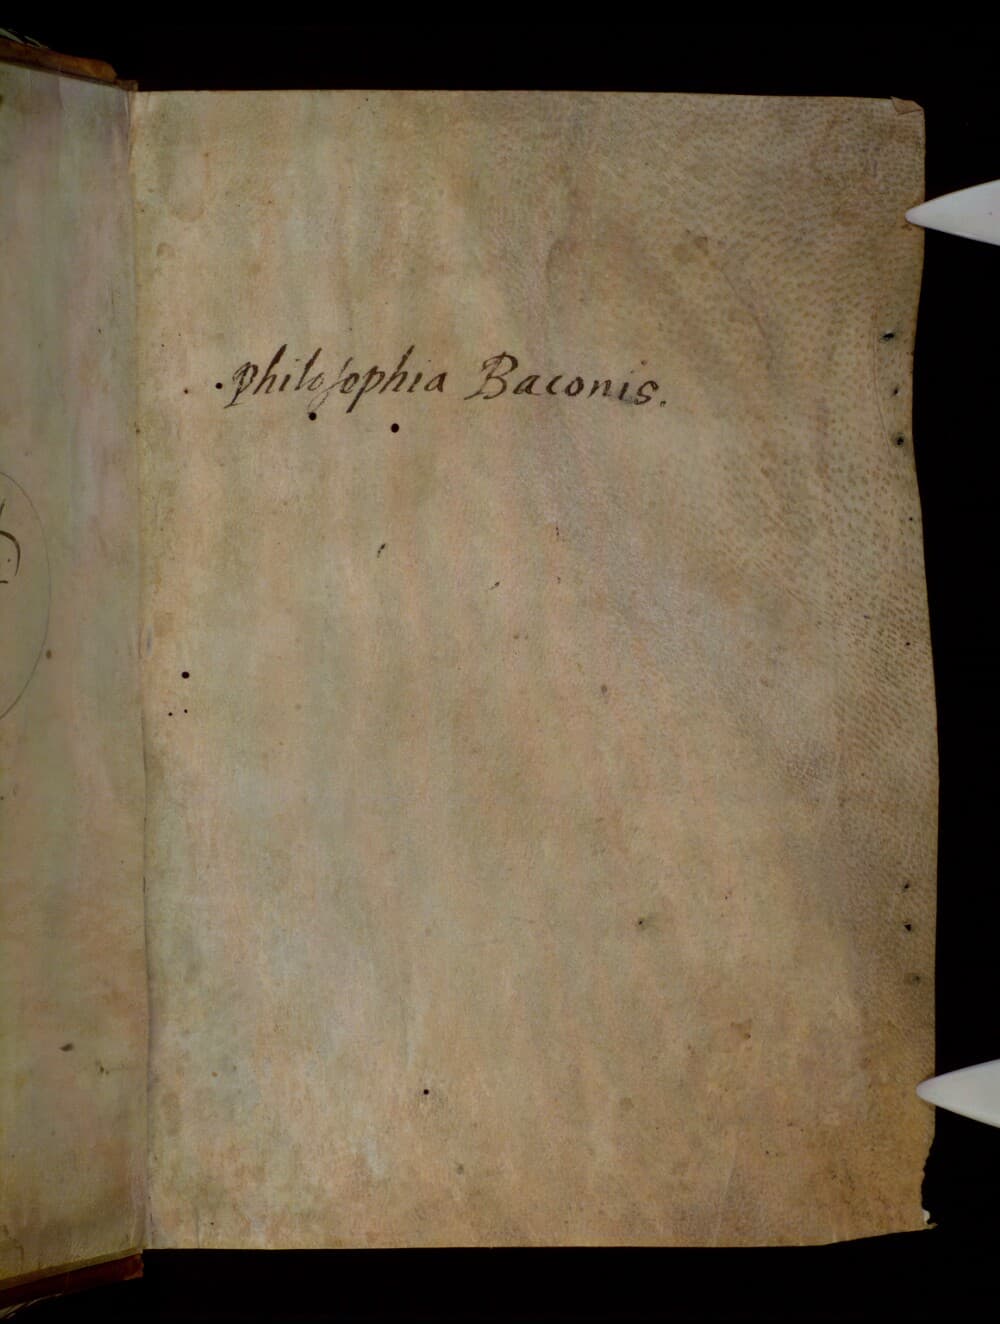 .Philosophia Baconis.